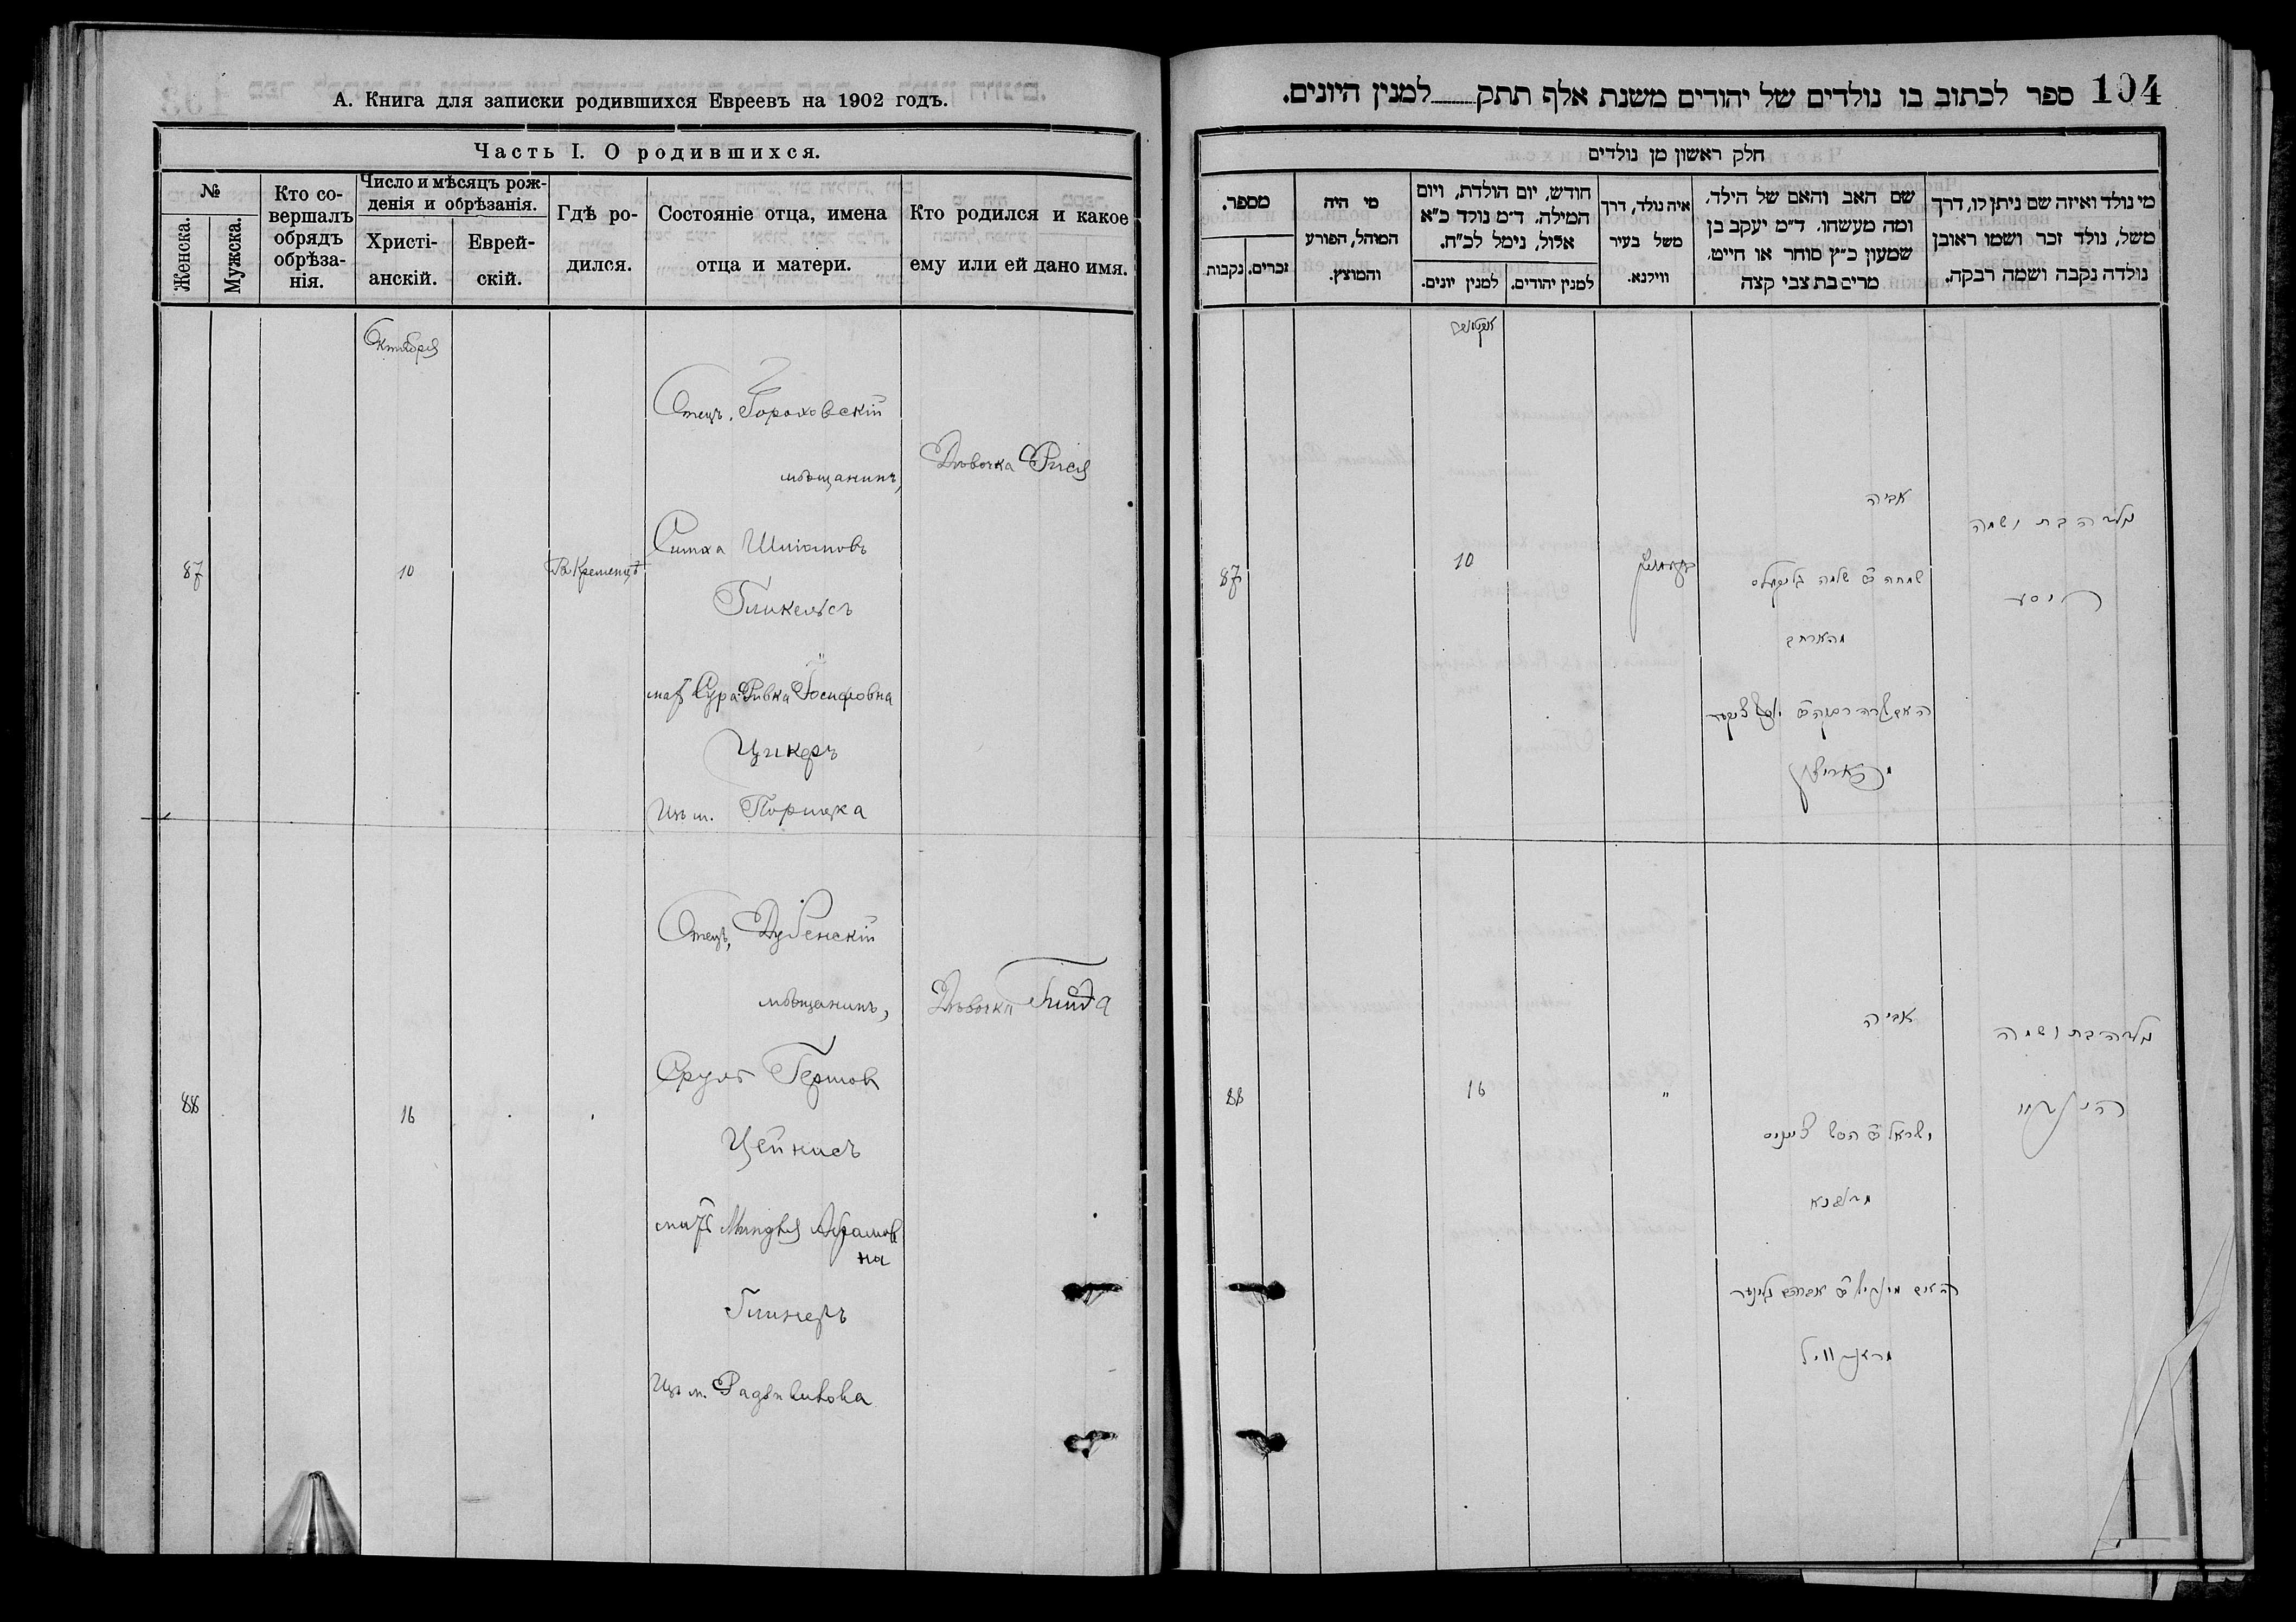 А. Книга для записки родившихся Евреевъ на 1902 годъ.
Часть I. О родившихся.
№
Женска.
Мужска.
Кто со-
вершалъ
обрядъ
обрѣза-
нія.
Число и мѣсяцъ рож-
денія и обрѣзанія.
Христі-
анскій.
Еврей-
скій.
Гдѣ ро-
дился.
Состояніе отца, имена
отца и матери.
Кто родился и какое
ему или ей дано имя.
Октября
87
10
Въ Кременцѣ
Отецъ, Гороховскій
мѣщанинъ,
Симха Шліомовъ
Гликельсъ
мать Сура-Ривка Іосифовна
Цукеръ
Изъ м. Порицка
Дѣвочка Рися
88
16
Отецъ, Дубенскій
мѣщанинъ,
Сруль Гершов
Цейнисъ
мать Миндля Абрамов
на
Глинеръ
Изъ м. Радзивилова
Дѣвочка Гинда
104 ספר לכתוב בו נולדים של יהודים משנת אלף תתק למנין היונים.
חלק ראשון מן נולדים
מספר.
זכרים.
נקבות
מי היה
המוהל, הפורע
והמוצץ.
חודש, יום הולדת, ויום
המילה. ד״מ נולד כ״א
אלול, נימל לכ״ח.
למנין יהודים.
למנין יונים.
איה נולד, דרך
משל בעיר
ווילנא.
שם האב והאם של הילד.
ומה מעשהו. ד״מ יעקב בן
שמעון כ״ץ סוחר או חייט.
מרים בת צבי קצה
מי נולד ואיזה שם ניתן לו, דרך
משל, נולד זכר ושמו ראובן
נולדה נקבה ושמה רבקה.
87
10
אביה
שמחה ב שלמה גליקעלס
האם שרה רבקה ב יוסף צוקער
נולדה בת ושמה
ריסע
88
16
"
אביה
ישראל ב הירש צייניס
מדובנא
האם מינדיל ב אברהם גלינער
מראדוויל
נולדה בת ושמה
הינדא